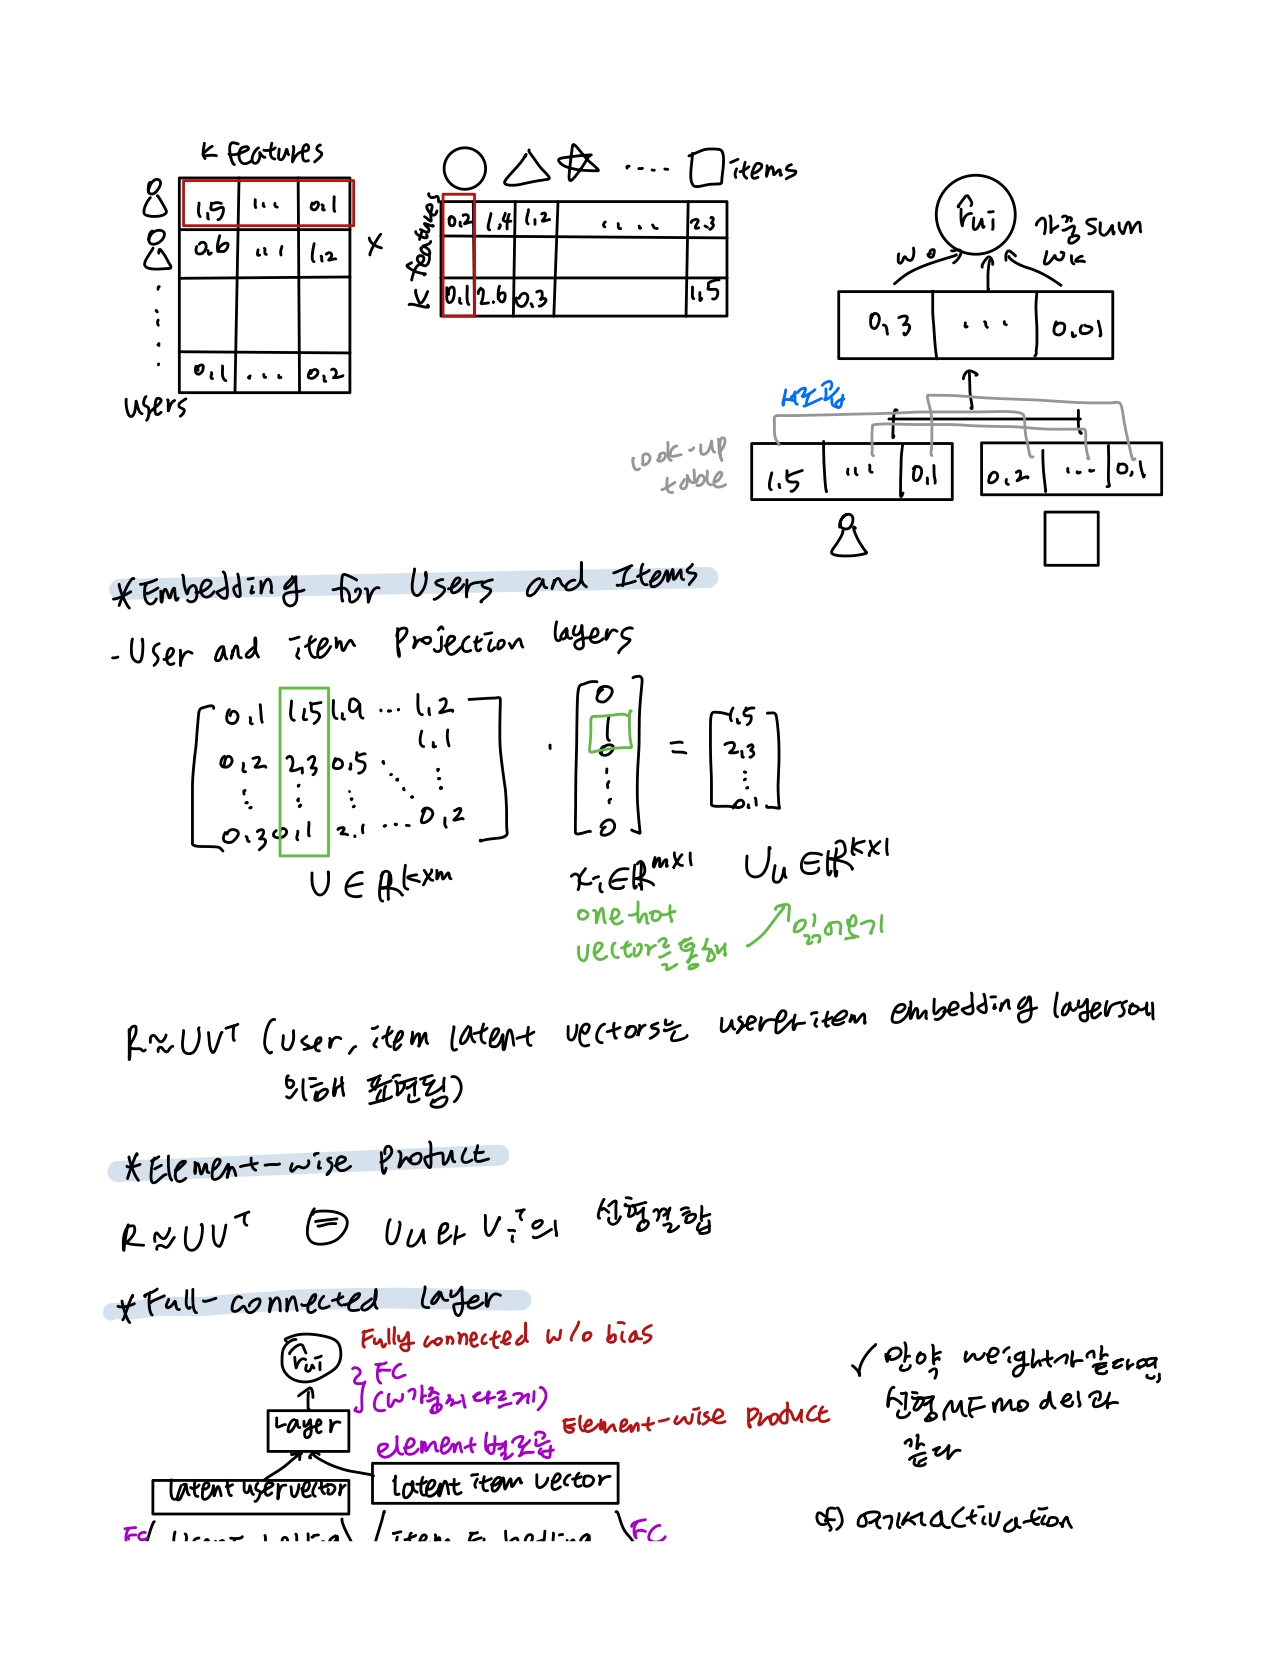 K features
1.5 ... 0.1
0.6 ... 1.2
0.1 ... 0.2
users
x
items
K features
0.2 1.4 1.2 .... 2.3
0.1 2.6 0.3 1.5
r̂ui
가중sum
w0 wk
0.3 ... 0.01
서로곱
look-up
table
1.5 ... 0.1
0.2 ... 0.1
*Embedding for Users and Items
- User and item Projection layers
0.1 1.5 1.9 ... 1.2
1.1
0.2 2.3 0.5
0.3 0.1 2.1 ... 0.2
·
0
1
0
0
=
1.5
2.3
0.1
U ∈ ℝ^k×m
xi ∈ ℝ^m×1
Uu ∈ ℝ^k×1
one-hot
vector를통해
읽어오기
R≈UV^T (User, item latent vectors는 user와item embedding layers에
의해 표현됨)
*Element-wise Product
R≈UV^T = Uu와 Vi^T의 선형결합
*Full-connected layer
r̂ui
Fully connected w/o bias
FC
(w가중치다르게)
Layer
Element-wise Product
element별로곱
latent user vector
latent item vector
FC
item Embedding
FC
✓ 만약 weight가 같다면,
선형MF model과
같다
여기서activation